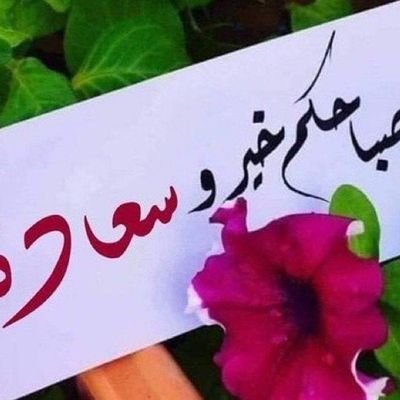 صباحكم خير و سعاده